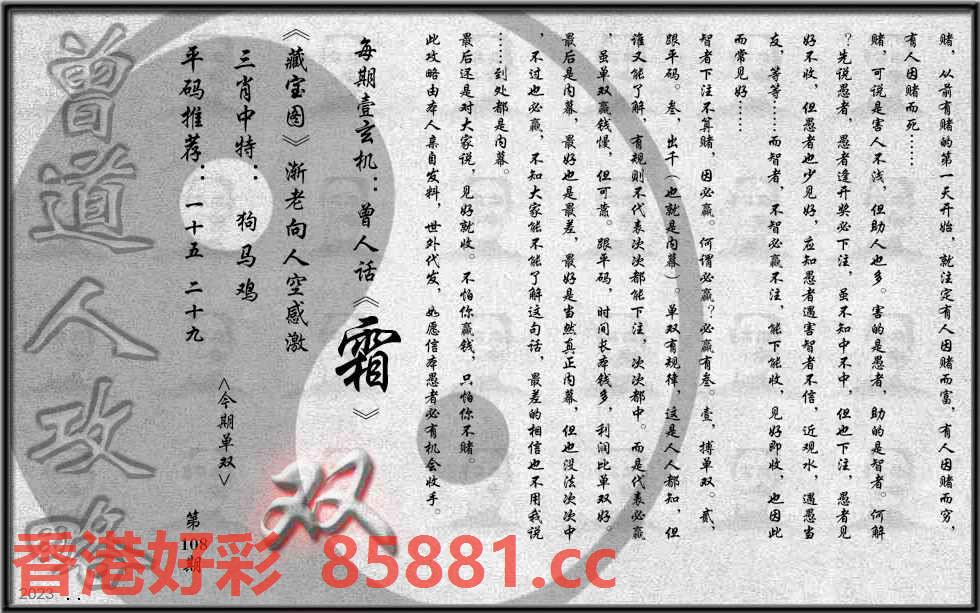 赌，从前有赌的第一天开始，就注定有人因赌而富，有人因赌而穷，
有人因赌而死……
赌，可说是害人不浅，但助人也多。害的是愚者，助的是智者。何解
？先说愚者，愚者逢开奖必下注，虽不知中不中，但也下注，愚者见
好不收，但愚者也少见好，应知愚者遇害智者不信，近观水，遇愚当
友，等等……而智者，不智必赢不注，能下能收，见好即收，也因此
而常见好……
智者下注不算赌，因必赢。何谓必赢？必赢有叁。壹，搏单双。贰，
跟平码。叁，出千（也就是内幕）。单双有规律，这是人人都知，但
谁又能了解，有规则不代表次次都能下注，次次都中。而是代表必赢
，虽单双赢钱慢，但可靠。跟平码，时间长本钱多，利润比单双好。
最后是内幕，最好也是最差，最好是当然真正内幕，但也没法次次中
，不过也必赢，不知大家能不能了解这句话，最差的相信也不用我说
……到处都是内幕。
最后还是对大家说，见好就收。不怕你赢钱，只怕你不赌。
此攻略由本人亲自发料，世外代发，如愿信本愚者必有机会收手。
每期壹玄机：曾人话《霜》
《藏宝图》渐老向人空感激
三肖中特：狗马鸡
平码推荐：一十五 二十九
<今期单双>
双
第
108
期
曾道人攻略
香港好彩 85881.cc
2023